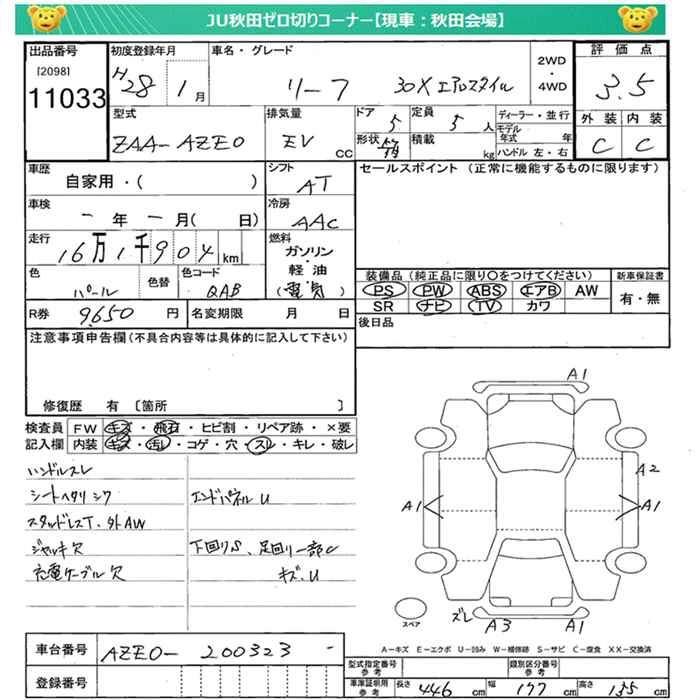 JU秋田ゼロ切りコーナー【現車：秋田会場】
出品番号
[2098]
11033
初度登録年月
H28 1月
車名・グレード
リーフ 30X エアロスタイル
2WD
・
4WD
評価点
3.5
外装 内装
C C
型式
ZAA-AZE0
排気量
EV CC
ドア
5
定員
5人
形状
積載
kg
ディーラー・並行
モデル年式 年
ハンドル 左・右
車歴
自家用・( )
車検
-年-月( 日)
走行
16万1千904km
色
パール
色替
色コード
QAB
シフト
AT
冷房
AAC
燃料
ガソリン
軽油
(電気)
セールスポイント (正常に機能するものに限ります)
装備品(純正品に限り○をつけてください)
PS PW ABS エアB AW
SR ナビ TV カワ
新車保証書
有・無
後日品
R券
9,650円
名変期限 月 日
注意事項申告欄(不具合内容等は具体的に記入して下さい)
修復歴 有 [箇所 ]
検査員記入欄
FW キズ・飛石・ヒビ割・リペア跡・×要
内装 キズ・汚レ・コゲ・穴・スレ・キレ・破レ
ハンドルスレ
シートヘタリ シワ
スタッドレスT.外AW
ジャッキ欠
充電ケーブル欠
エンドパネルU
下回りS、足回り一部C
キズ.U
A1
A2
A1
A1
スペア
ズレ
A3
A1
A-キズ E-エクボ U-凹み W-補修跡 S-サビ C-腐食 XX-交換済
車台番号
AZE0-200323-
登録番号
型式指定番号
参考
類別区分番号
参考
車庫証明用
参考
長さ 446cm 幅 177cm 高さ 155cm